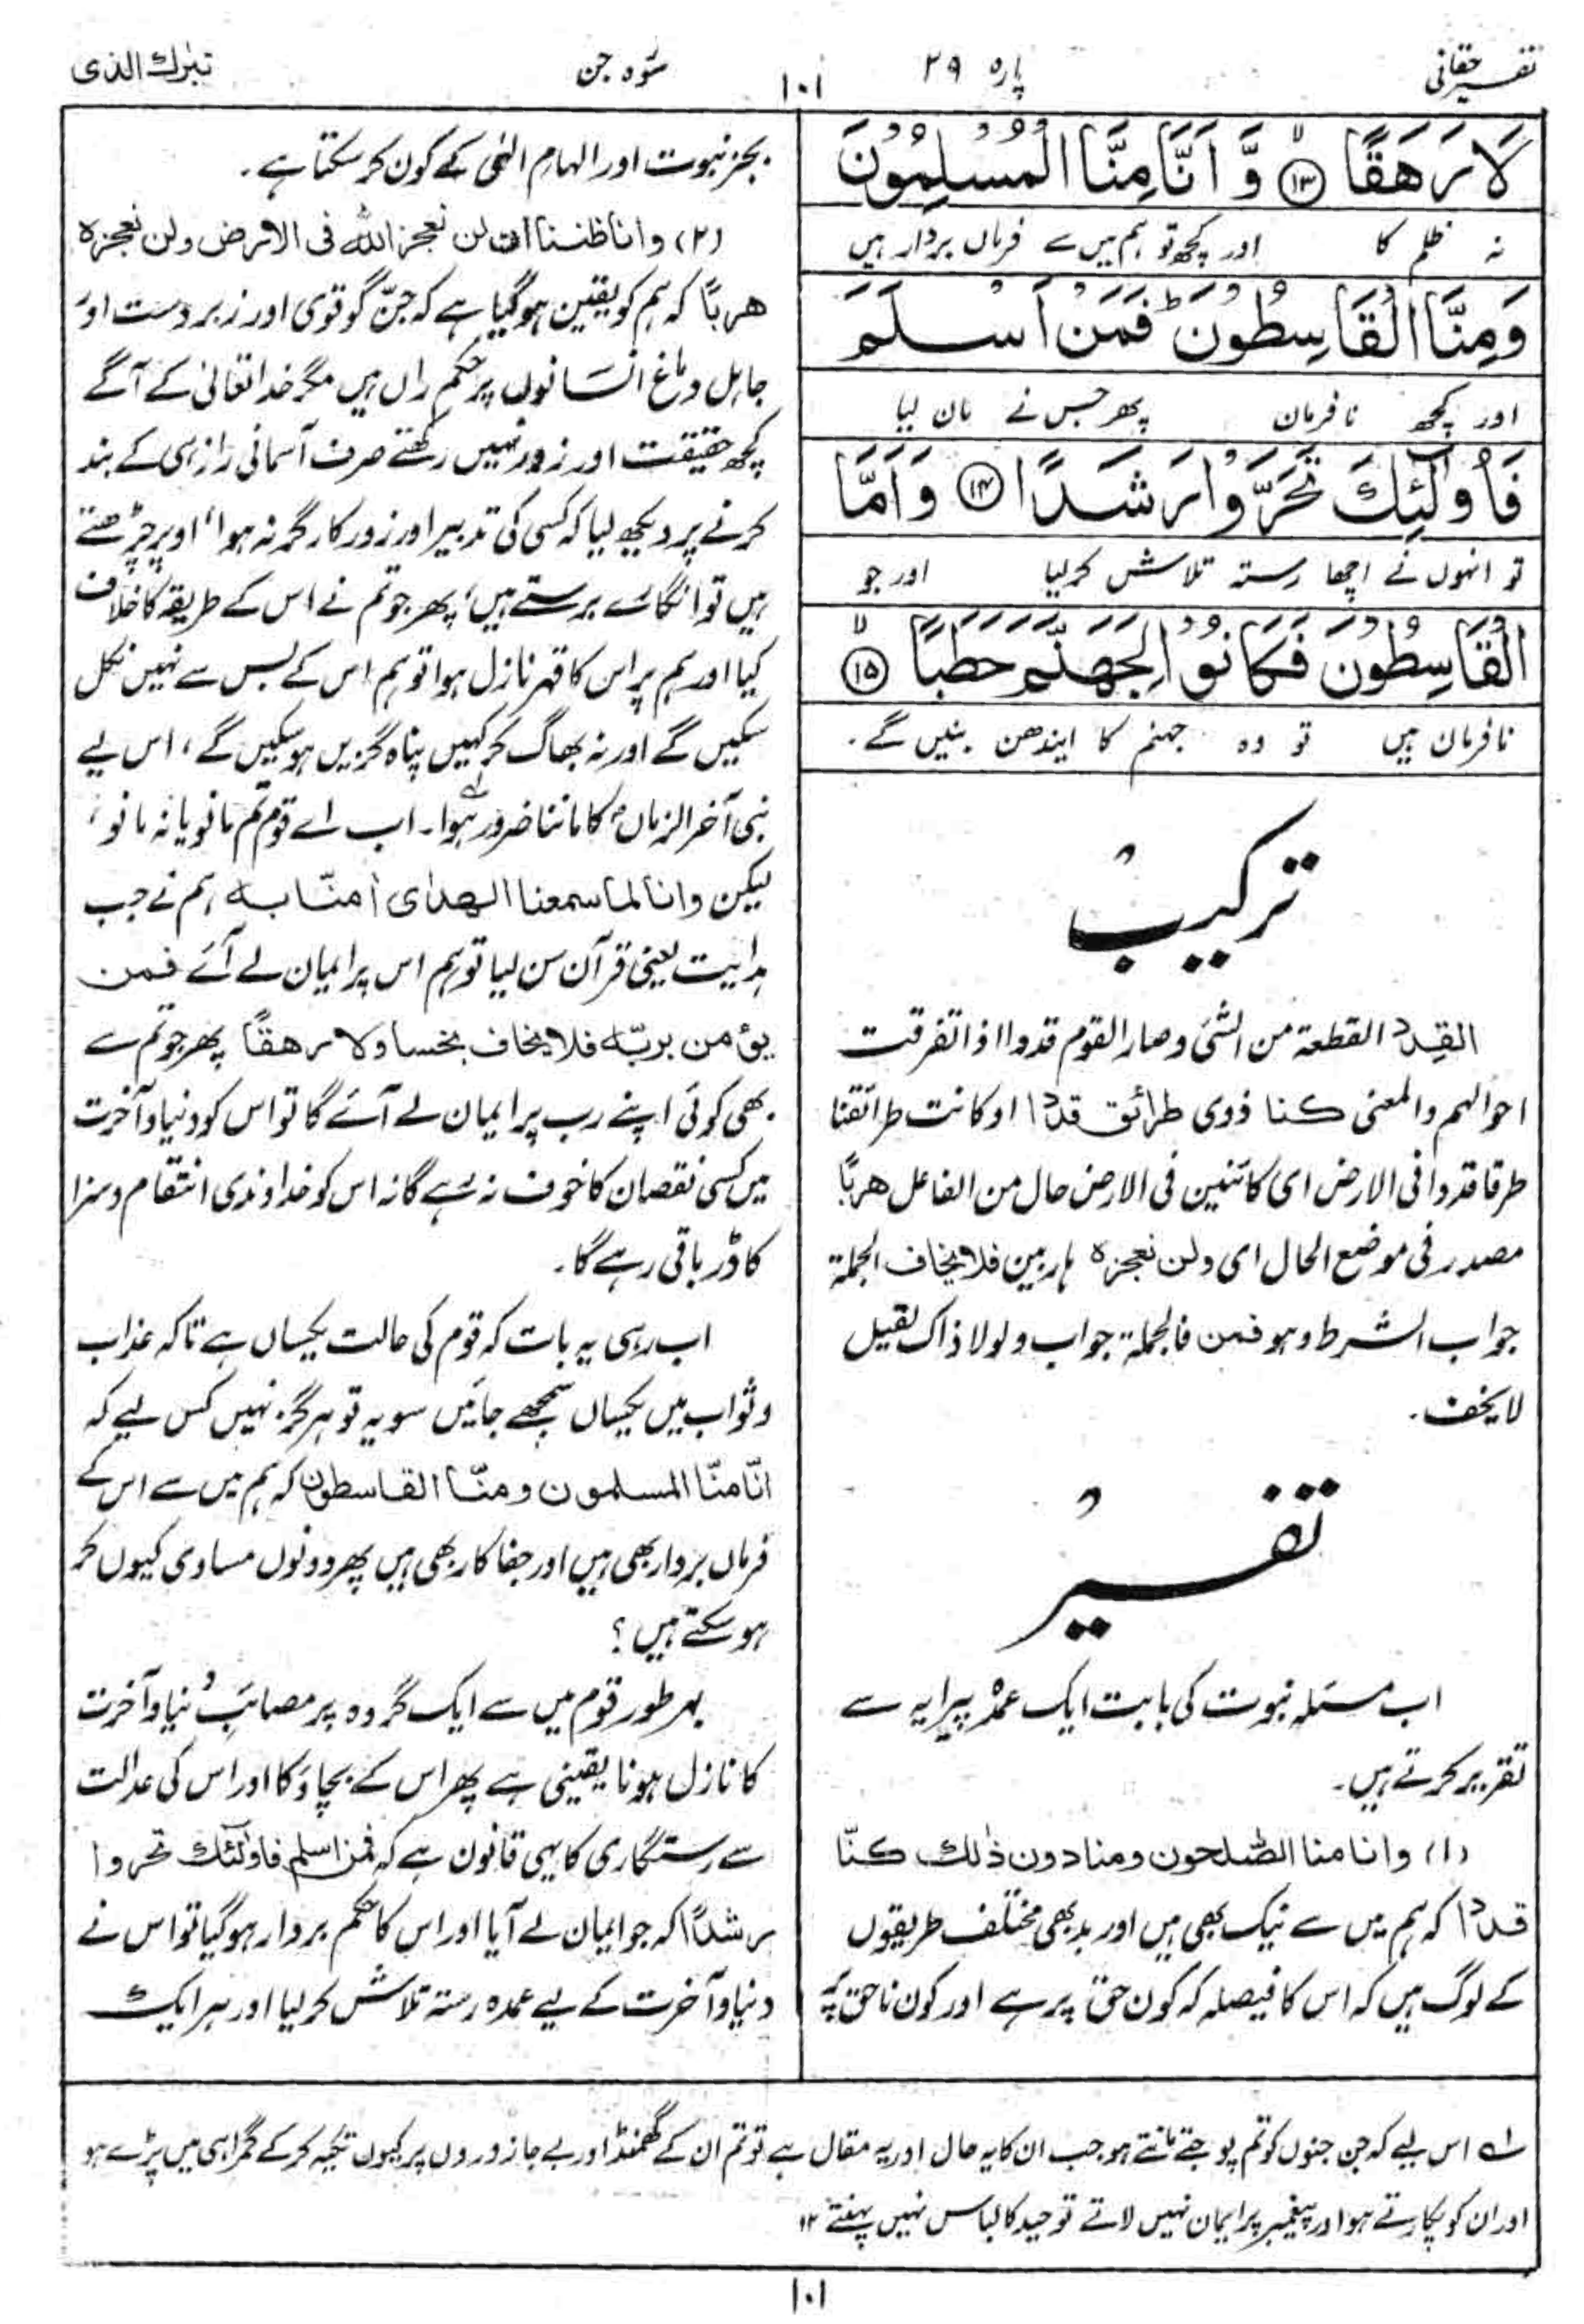 تفسیر حقانی
پارہ ۲۹
۱۰۱
سُوْرہ جن
تبٰرك الذی
لَا رَهَقًا ۙ﴿۱۳﴾ وَّ اَنَّا مِنَّا الْمُسْلِمُوْنَ
نہ ظلم کا اور کچھ تو ہم میں سے فرماں بردار ہیں
وَمِنَّا الْقَاسِطُوْنَ ؕ فَمَنْ اَسْلَمَ
اور کچھ نافرمان پھر جس نے مان لیا
فَاُولٰٓئِكَ تَحَرَّوْا رَشَدًا ﴿۱۴﴾ وَاَمَّا
تو انہوں نے اچھا رستہ تلاش کرلیا اور جو
الْقَاسِطُوْنَ فَكَانُوْا لِجَهَنَّمَ حَطَبًا ۙ﴿۱۵﴾
نافرمان ہیں تو وہ جہنم کا ایندھن بنیں گے۔
ترکیبُ
القِدد القطعة من الشئ وصار القوم قددا اذا تفرقت
احوالہم والمعنی کنا ذوی طرائق قددا او کانت طرائقنا
طرقا قددا فی الارض ای کائنین فی الارض حال من الفاعل ھربًا
مصدر فی موضع الحال ای ولن نعجزہ ہاربین فلا یخاف الجملة
جواب الشرط وہو فمن فالجملة جواب ولولا ذاک لقیل
لا یخف۔
تفسیرُ
اب مسئلہ نبوت کی بابت ایک عمدہ پیرایہ سے
تقریر کرتے ہیں۔
(۱) وانا منا الصّٰلحون ومنا دون ذٰلك کنّا
قددا کہ ہم میں سے نیک بھی ہیں اور بد بھی مختلف طریقوں
کے لوگ ہیں کہ اس کا فیصلہ کہ کون حق پر ہے اور کون ناحق پر
بجز نبوت اور الہام الٰہی کے کون کر سکتا ہے۔
(۲) وانا ظننا ان لن نعجز اللہ فی الارض ولن نعجزہ
ھربًا کہ ہم کو یقین ہوگیا ہے کہ جنّ گو قوی اور زبردست اور
جاہل دماغ انسانوں پر حکم راں ہیں مگر خدا تعالیٰ کے آگے
کچھ حقیقت اور زور نہیں رکھتے صرف آسمانی راز ہی کے بند
کرنے پر دیکھ لیا کہ کسی کی تدبیر اور زور کارگر نہ ہوا، اوپر چڑھتے
ہیں تو انگارے برستے ہیں، پھر جو تم نے اس کے طریقہ کا خلاف
کیا اور ہم پر اس کا قہر نازل ہوا تو ہم اس کے بس سے نہیں نکل
سکیں گے اور نہ بھاگ کر کہیں پناہ گزیں ہو سکیں گے، اس لیے
نبی آخر الزماںؐ کا ماننا ضرور ہوا۔ اب اے قوم تم مانو یا نہ مانو،
لیکن وانا لما سمعنا الھدٰی اٰمنّا بہ ہم نے جب
ہدایت یعنی قرآن سن لیا تو ہم اس پر ایمان لے آئے فمن
یؤمن بربّہ فلا یخاف بخسا ولا رھقًا پھر جو تم سے
بھی کوئی اپنے رب پر ایمان لے آئے گا تو اس کو دنیا و آخرت
میں کسی نقصان کا خوف نہ رہے گا نہ اس کو خداوندی انتقام و سزا
کا ڈر باقی رہے گا۔
اب رہی یہ بات کہ قوم کی حالت یکساں ہے تاکہ عذاب
و ثواب میں یکساں سمجھے جائیں سو یہ تو ہرگز نہیں کس لیے کہ
انّا منّا المسلمون ومنّا القاسطون کہ ہم میں سے اس کے
فرماں بردار بھی ہیں اور جفا کار بھی ہیں پھر دونوں مساوی کیوں کر
ہو سکتے ہیں؟
بہر طور قوم میں سے ایک گروہ پر مصائبِ دُنیا و آخرت
کا نازل ہونا یقینی ہے پھر اس کے بچاؤ کا اور اس کی عدالت
سے رستگاری کا یہی قانون ہے کہ فمن اسلم فاولٰئك تحروا
رشدًا کہ جو ایمان لے آیا اور اس کا حکم بردار ہوگیا تو اس نے
دنیا و آخرت کے لیے عمدہ رستہ تلاش کر لیا اور ہر ایک
لہ اس لیے کہ جن جنوں کو تم پوجتے مانتے ہو جب ان کا یہ حال اور یہ مقال ہے تو تم ان کے گھمنڈ اور بے جا زوروں پر کیوں تکیہ کرکے گمراہی میں پڑے ہو
اور ان کو پکارتے ہو اور پیغمبر پر ایمان نہیں لاتے توحید کا لباس نہیں پہنتے ۱۲
۱۰۱